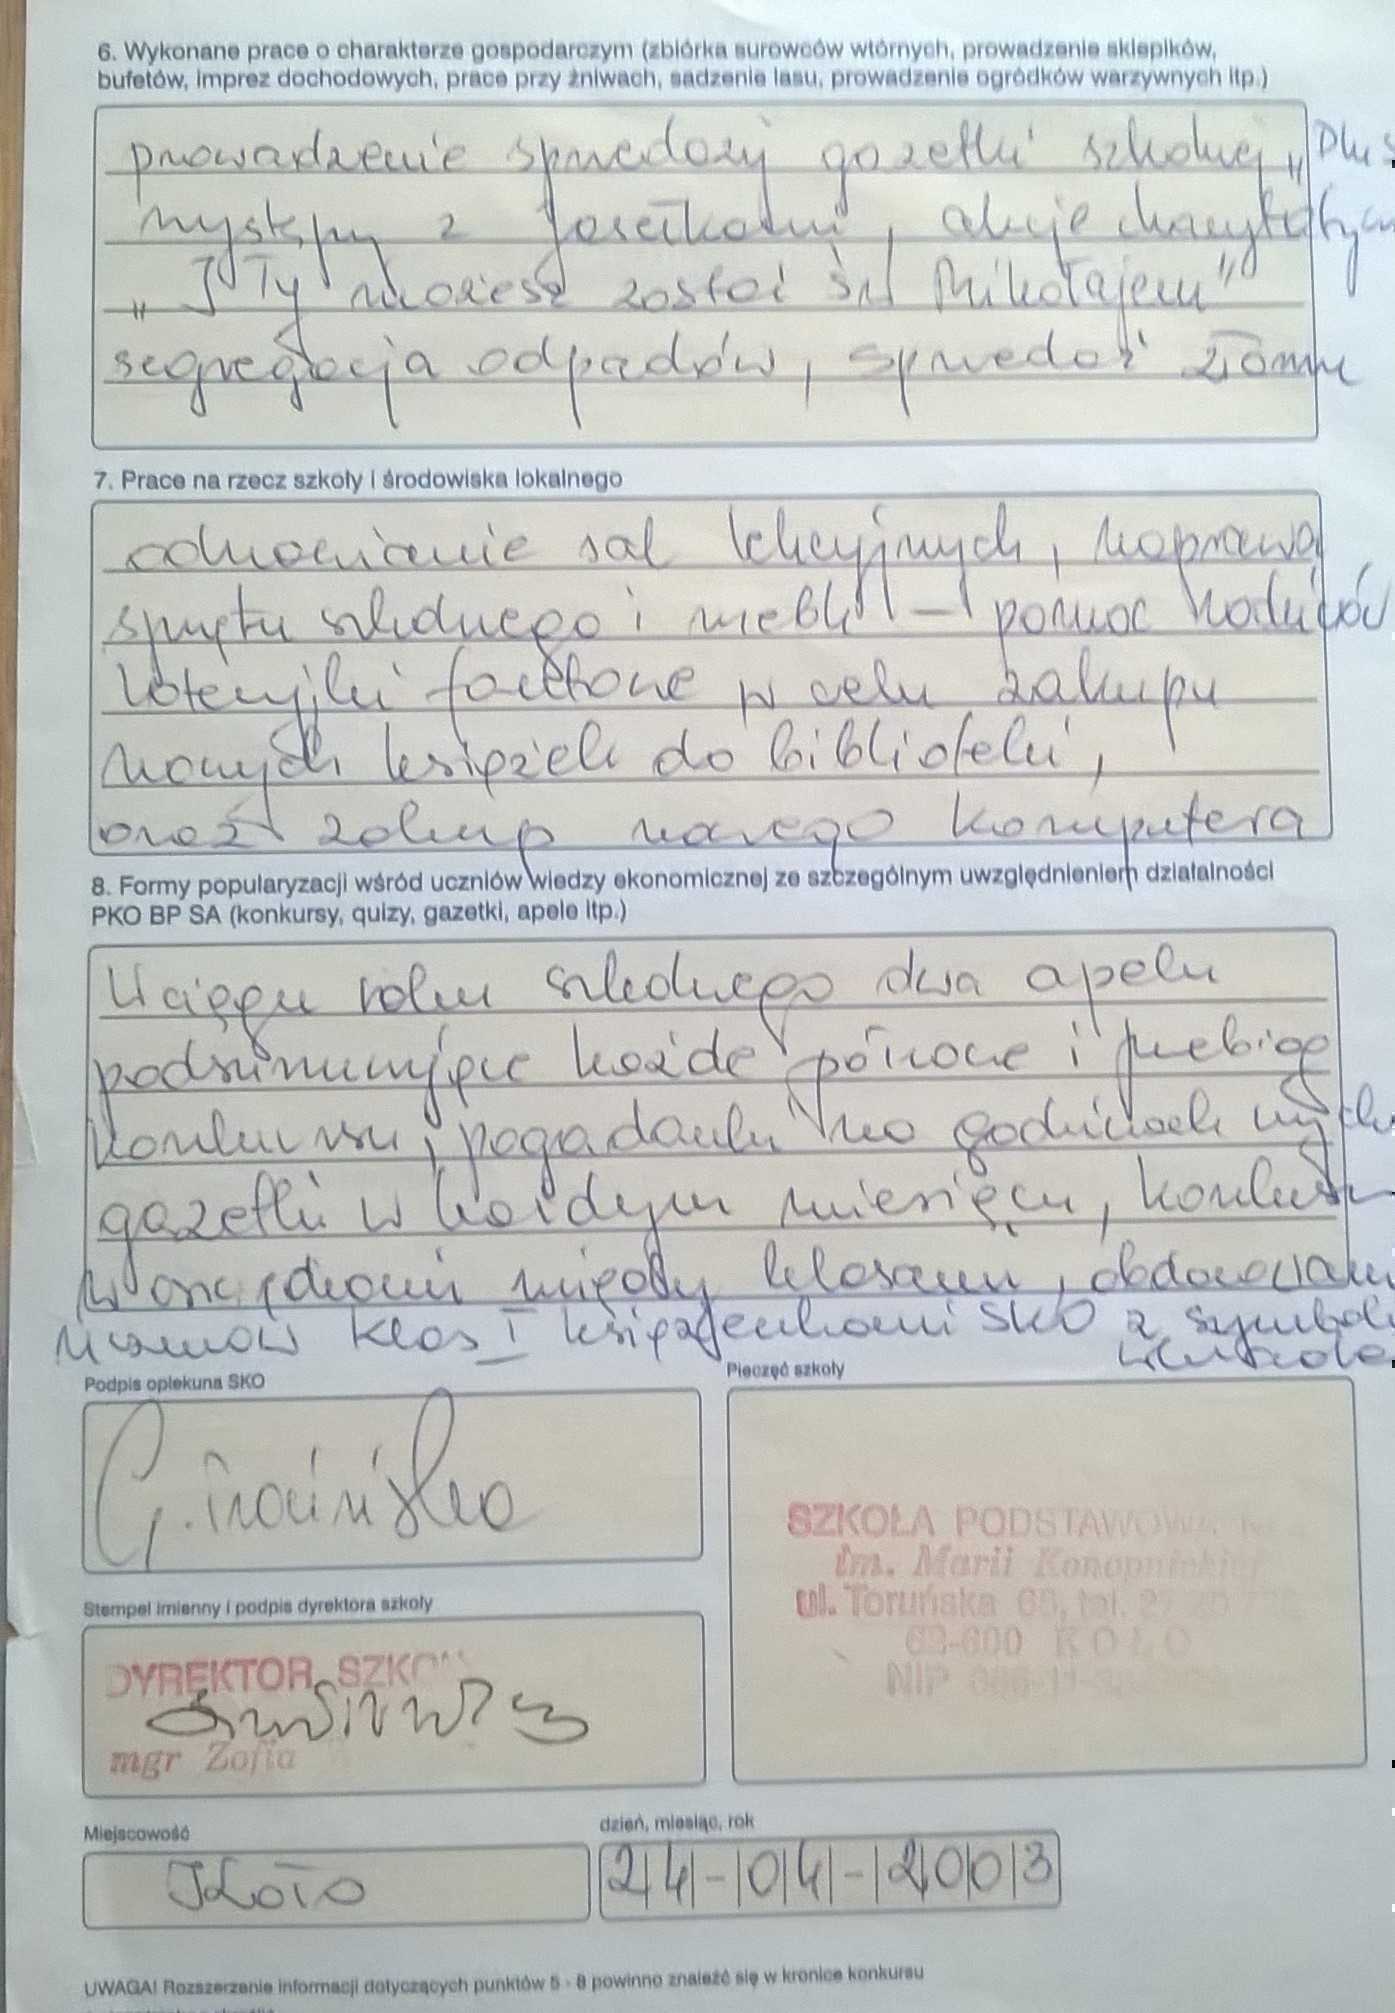 6. Wykonane prace o charakterze gospodarczym (zbiórka surowców wtórnych, prowadzenie sklepików,
bufetów, imprez dochodowych, prace przy żniwach, sadzenie lasu, prowadzenie ogródków warzywnych itp.)
prowadzenie sprzedaży gazetki szkolnej „Plus
występy z Jasełkami, akcje charytatywn
„I Ty możesz zostać św Mikołajem”
segregacja odpadów, sprzedaż złomu
7. Prace na rzecz szkoły i środowiska lokalnego
odnawianie sal lekcyjnych, naprawa
sprzętu szkolnego i mebli – pomoc rodziców
loteryjki fantowe w celu zakupu
nowych książek do biblioteki,
oraz zakup nowego komputera
8. Formy popularyzacji wśród uczniów wiedzy ekonomicznej ze szczególnym uwzględnieniem działalności
PKO BP SA (konkursy, quizy, gazetki, apele itp.)
W ciągu roku szkolnego dwa apele
podsumowujące każde półrocze i przebieg
konkursu, pogadanki na godzinach
gazetki w każdym miesiącu, konkurs
w oszczędzaniu między klasami,
uczniów klas I książeczkami SKO z symbol
Podpis opiekuna SKO
Pieczęć szkoły
SZKOŁA PODSTAWOWA
im. Marii Konopnickiej
ul. Toruńska 68, tel.
62-600 KOŁO
NIP
Stempel imienny i podpis dyrektora szkoły
DYREKTOR SZKOŁY
mgr Zofia
Miejscowość
dzień, miesiąc, rok
Koło
24-04-2003
UWAGA! Rozszerzenie informacji dotyczących punktów 5 - 8 powinno znaleźć się w kronice konkursu